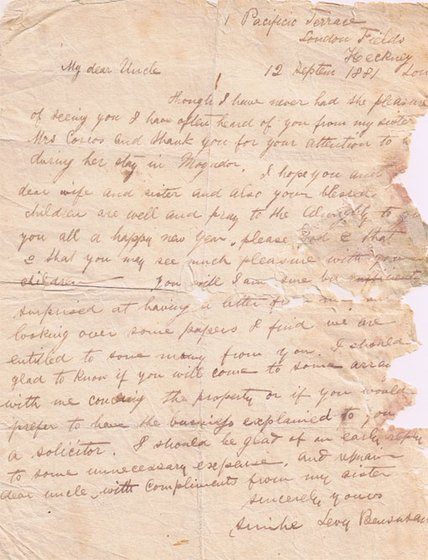 1 Pacific Terrace
London Fields
Hackney
My dear Uncle 12 Septem 1881 Lon
Though I have never had the pleasure
of seeing you I have often heard of you from my sister
Mrs Corcos and thank you for your attention to
during her stay in Mogador. I hope you and
dear wife and sister and also your blessed
children are well and pray to the Almighty to
you all a happy new year, please God & that
& that you may see much pleasure with your
children You will I am sure be
surprised at having a letter from me.
looking over some papers I find we are
entitled to some money from you. I should
glad to know if you will come to some arra
with me the property or if you would
prefer to have the business explained to you
a solicitor. I should be glad of an early reply
to some unnecessary expense. and remain
dear uncle, with compliments from my sister
sincerely yours
Simha Levy Bensusan